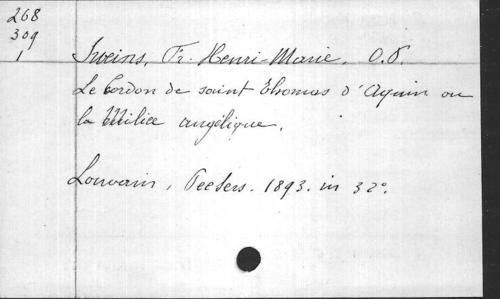 268
309
1
Iweins, Fr. Henri-Marie. O.P.
Le Cordon de saint Thomas d'Aquin ou
la Milice angélique.
Louvain, Peeters. 1893. in 32°.